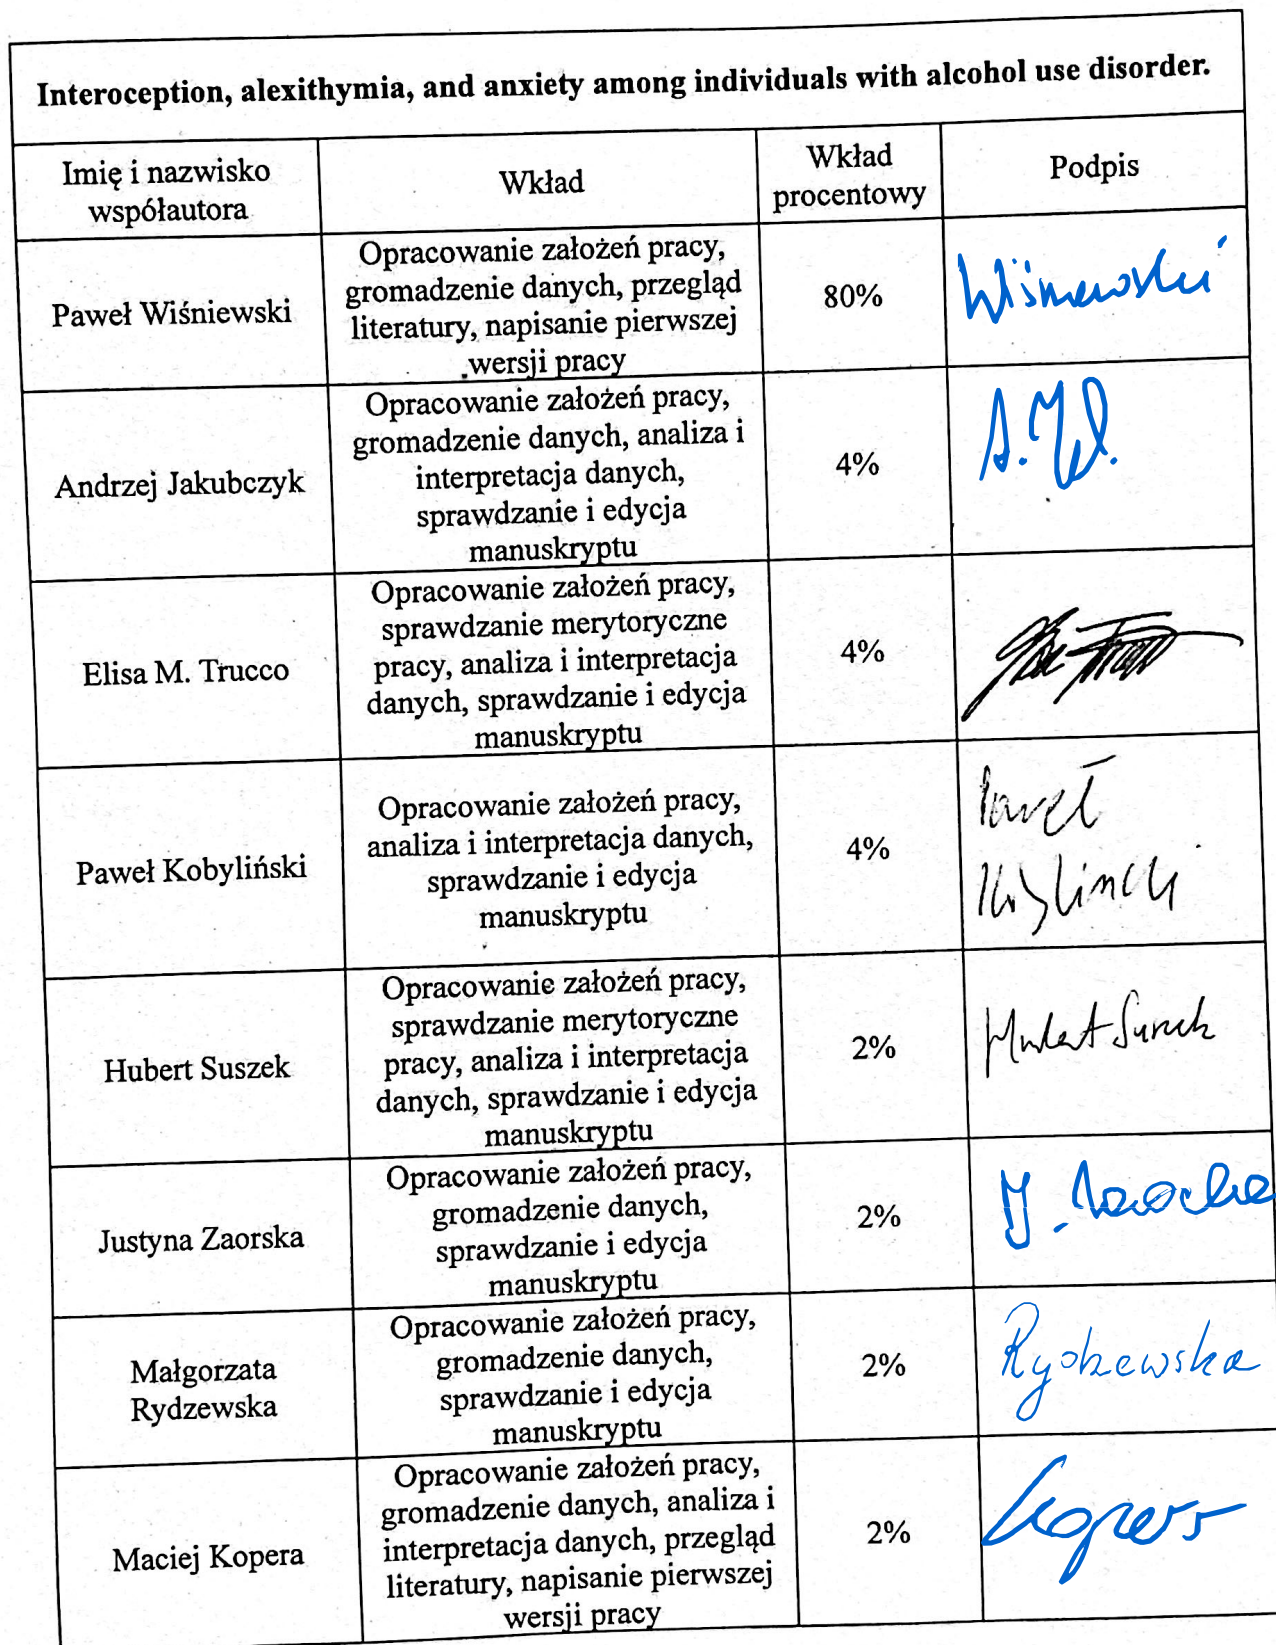 Interoception, alexithymia, and anxiety among individuals with alcohol use disorder.
Imię i nazwisko
współautora
Wkład
Wkład
procentowy
Podpis
Paweł Wiśniewski
Opracowanie założeń pracy,
gromadzenie danych, przegląd
literatury, napisanie pierwszej
wersji pracy
80%
Wiśniewski
Andrzej Jakubczyk
Opracowanie założeń pracy,
gromadzenie danych, analiza i
interpretacja danych,
sprawdzanie i edycja
manuskryptu
4%
Elisa M. Trucco
Opracowanie założeń pracy,
sprawdzanie merytoryczne
pracy, analiza i interpretacja
danych, sprawdzanie i edycja
manuskryptu
4%
Paweł Kobyliński
Opracowanie założeń pracy,
analiza i interpretacja danych,
sprawdzanie i edycja
manuskryptu
4%
Paweł
Kobyliński
Hubert Suszek
Opracowanie założeń pracy,
sprawdzanie merytoryczne
pracy, analiza i interpretacja
danych, sprawdzanie i edycja
manuskryptu
2%
Hubert Suszek
Justyna Zaorska
Opracowanie założeń pracy,
gromadzenie danych,
sprawdzanie i edycja
manuskryptu
2%
Małgorzata
Rydzewska
Opracowanie założeń pracy,
gromadzenie danych,
sprawdzanie i edycja
manuskryptu
2%
Rydzewska
Maciej Kopera
Opracowanie założeń pracy,
gromadzenie danych, analiza i
interpretacja danych, przegląd
literatury, napisanie pierwszej
wersji pracy
2%
Kopera